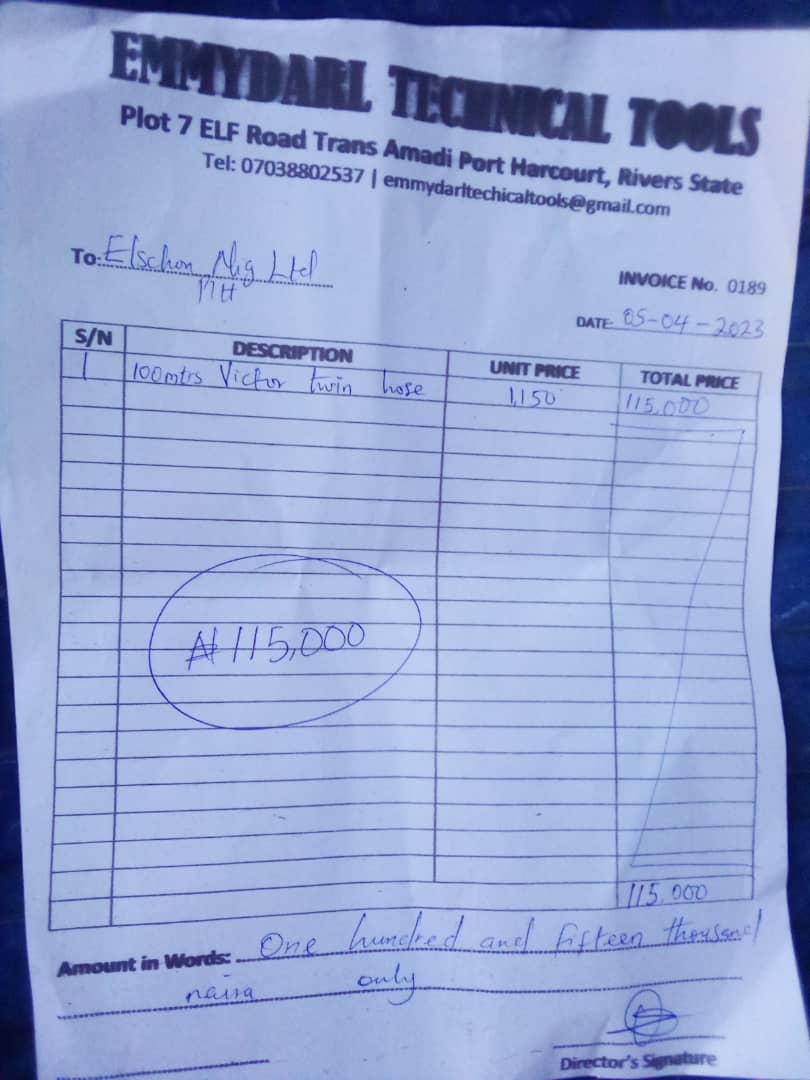 EMMYDARL TECHNICAL TOOLS
Plot 7 ELF Road Trans Amadi Port Harcourt, Rivers State
Tel: 07038802537 | emmydarltechicaltools@gmail.com
To: Elschon Nig Ltd
PH
INVOICE No. 0189
DATE: 05-04-2023
S/N DESCRIPTION UNIT PRICE TOTAL PRICE
1 100mtrs Victor twin hose 1,150 115,000
₦115,000
115,000
Amount in Words: One hundred and fifteen thousand
naira only
Director's Signature